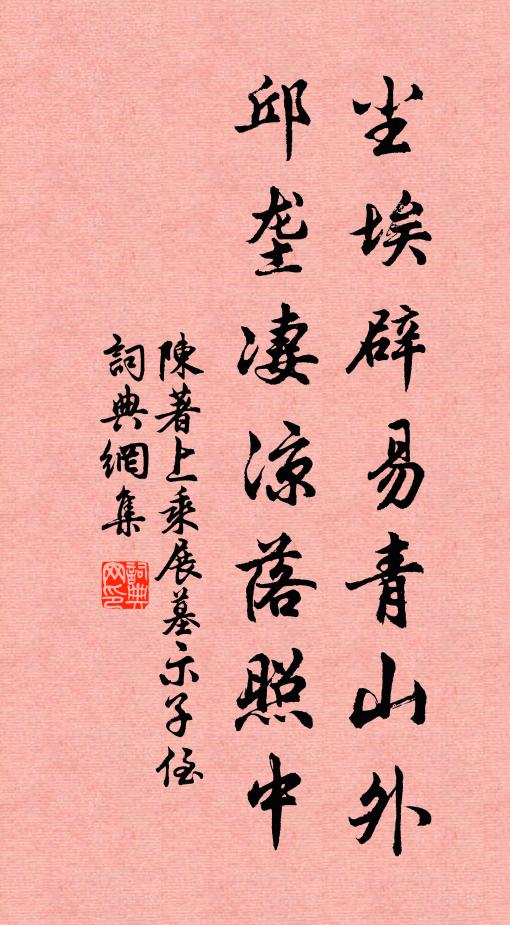 尘埃辟易青山外
邱垄凄凉落照中
陳著上乘展墓示子侄
詞典網集
詞典網印